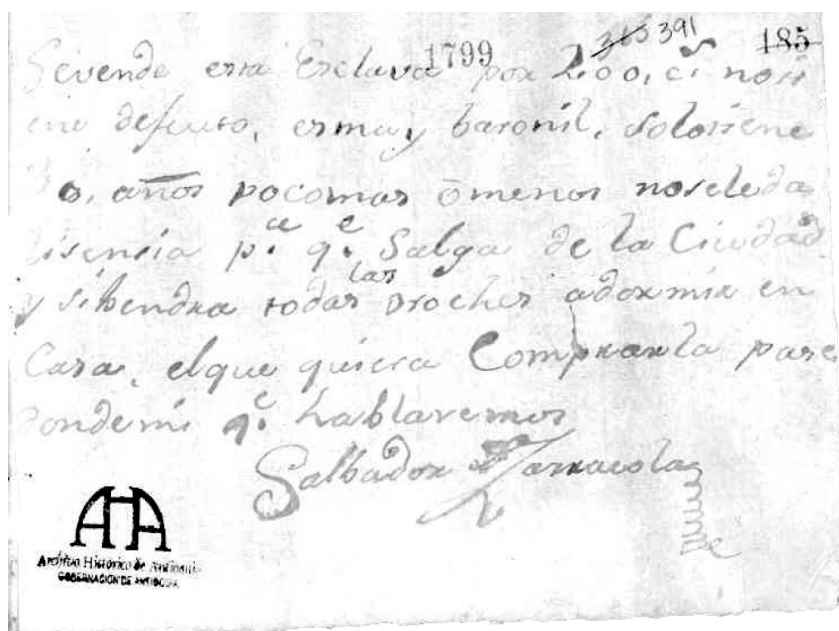 365 391
1799 185
Sevende esta Esclava por 200, no ti
ene defecto, es ma, y baronil, solo tiene
30, años poco mas ō menos no se le da
lisensia p.ᵃ q.ᵉ Salga de la Ciudad
y si bendra todas las noches a dormir en
Casa, el que quiera Comprarla pase
donde mi q.ᵉ hablaremos
Salbador
AHA
Archivo Histórico de Antioquia
GOBERNACIÓN DE ANTIOQUIA